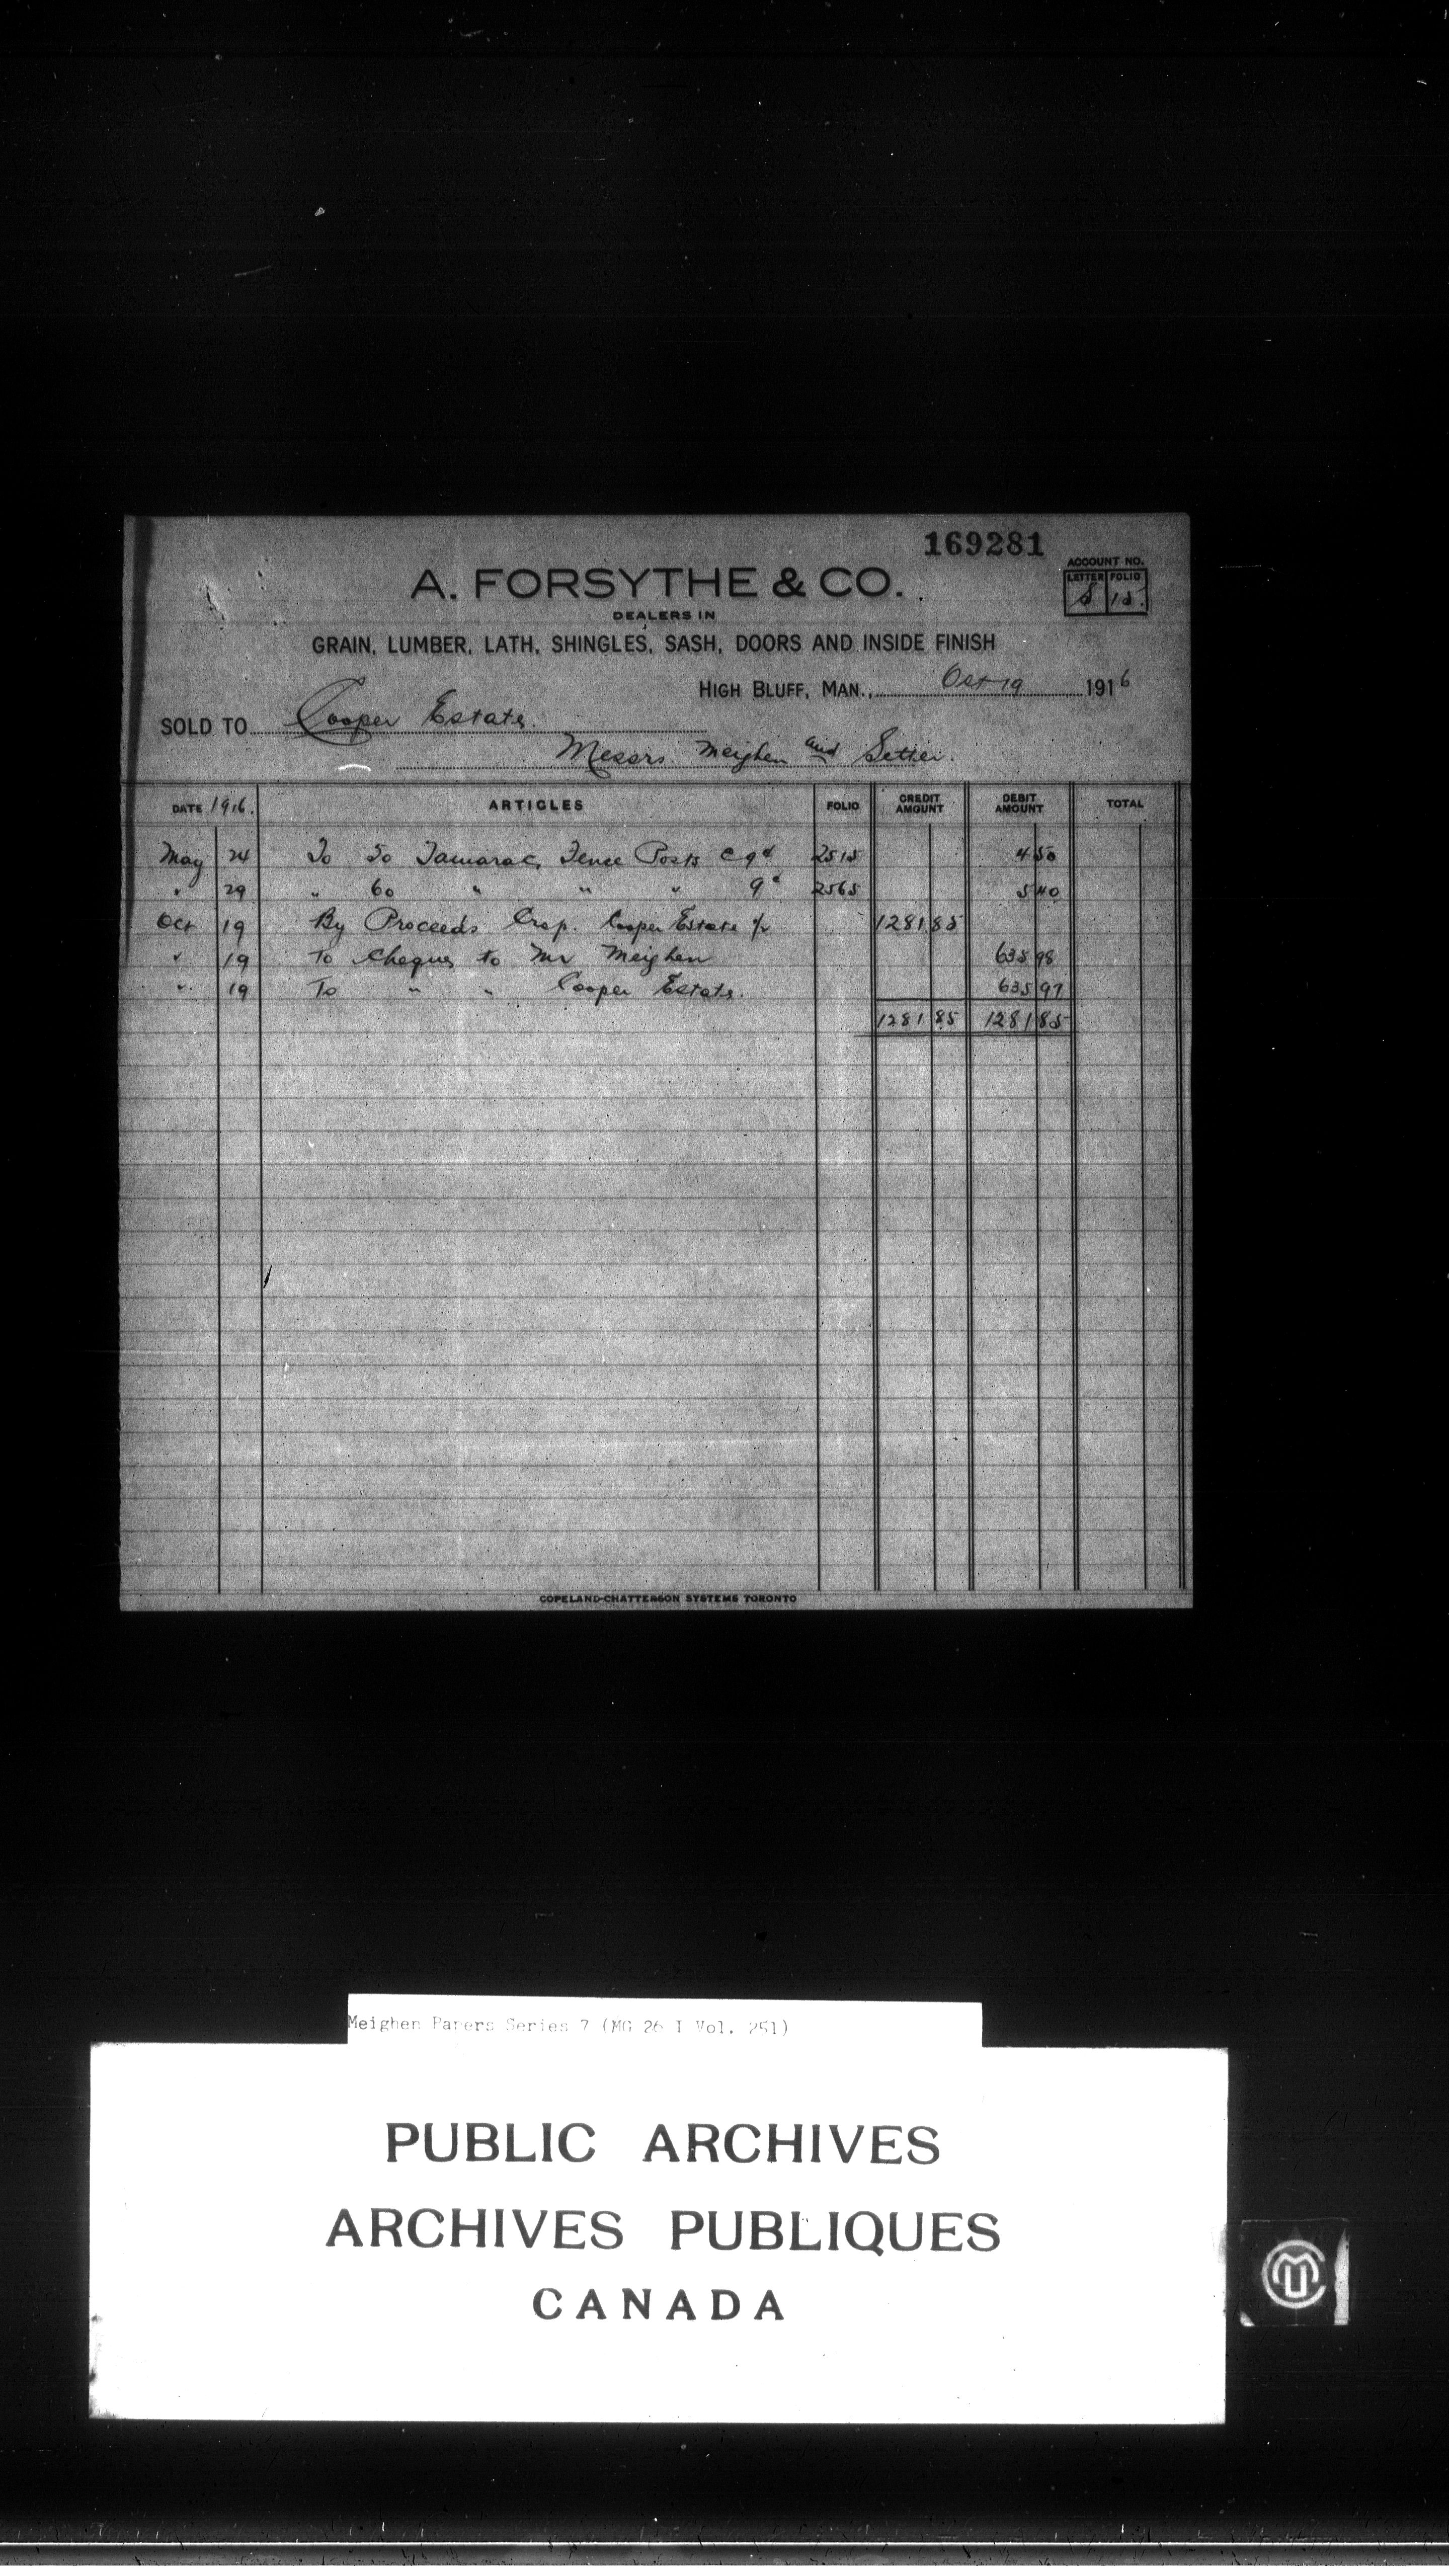 169281
ACCOUNT NO.
LETTER FOLIO
S 15.
A. FORSYTHE & CO.
DEALERS IN
GRAIN, LUMBER, LATH, SHINGLES, SASH, DOORS AND INSIDE FINISH
HIGH BLUFF, MAN., Oct 19 1916
SOLD TO Cooper Estate.
Messrs. Meighen and Setter.
DATE 1916. ARTICLES FOLIO CREDIT AMOUNT DEBIT AMOUNT TOTAL
May 24 To 50 Tamarac, Fence Posts @ 9¢ 2515 4 50
" 29 " 60 " " " 9¢ 2565 5 40
Oct 19 By Proceeds Crop. Cooper Estate 1281 85
" 19 To Cheque to Mr Meighen 635 98
" 19 To " " Cooper Estate. 635 97
1281 85 1281 85
COPELAND-CHATTERSON SYSTEMS TORONTO
Meighen Papers Series 7 (MG 26 I Vol. 251)
PUBLIC ARCHIVES
ARCHIVES PUBLIQUES
CANADA